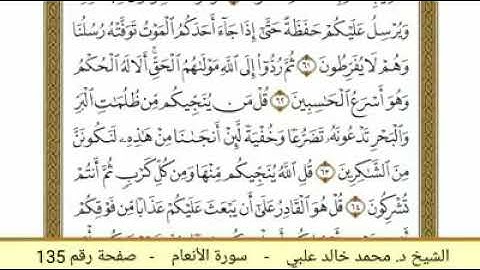 وَيُرْسِلُ عَلَيْكُمْ حَفَظَةً حَتَّىٰٓ إِذَا جَآءَ أَحَدَكُمُ ٱلْمَوْتُ تَوَفَّتْهُ رُسُلُنَا
وَهُمْ لَا يُفَرِّطُونَ ٦١ ثُمَّ رُدُّوٓا۟ إِلَى ٱللَّهِ مَوْلَىٰهُمُ ٱلْحَقِّ أَلَا لَهُ ٱلْحُكْمُ
وَهُوَ أَسْرَعُ ٱلْحَٰسِبِينَ ٦٢ قُلْ مَن يُنَجِّيكُم مِّن ظُلُمَٰتِ ٱلْبَرِّ
وَٱلْبَحْرِ تَدْعُونَهُۥ تَضَرُّعًا وَخُفْيَةً لَّئِنْ أَنجَىٰنَا مِنْ هَٰذِهِۦ لَنَكُونَنَّ
مِنَ ٱلشَّٰكِرِينَ ٦٣ قُلِ ٱللَّهُ يُنَجِّيكُم مِّنْهَا وَمِن كُلِّ كَرْبٍ ثُمَّ أَنتُمْ
تُشْرِكُونَ ٦٤ قُلْ هُوَ ٱلْقَادِرُ عَلَىٰٓ أَن يَبْعَثَ عَلَيْكُمْ عَذَابًا مِّن فَوْقِكُمْ
الشيخ د. محمد خالد علبي - سورة الأنعام - صفحة رقم 135